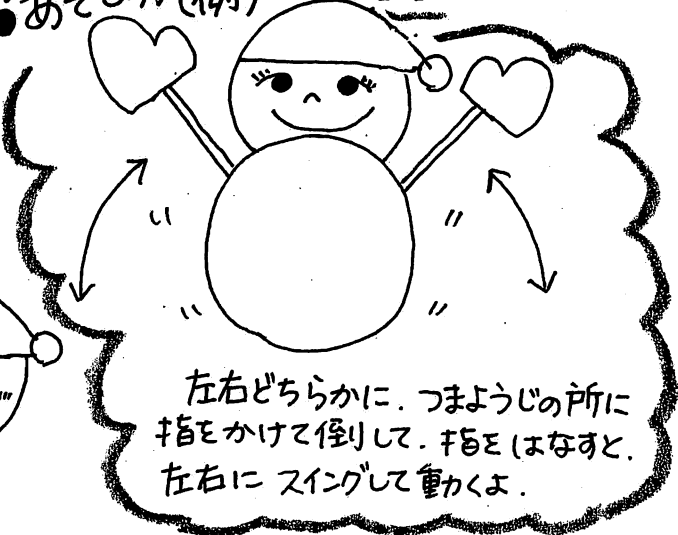 ●あそびかた(例)
左右どちらかに．つまようじの所に
指をかけて倒して．指をはなすと．
左右に スイングして動くよ．